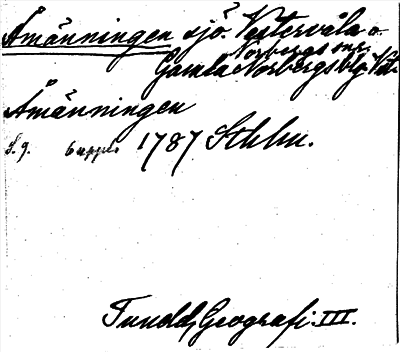 Åmänningen sjö. Vestervåla o.
Norbergs snr.
Gamla Norbergsbg. Vstm.
Åmänningen
S. 9. 6 uppl. 1787 Sthlm.
Tuneld, Geografi. III.